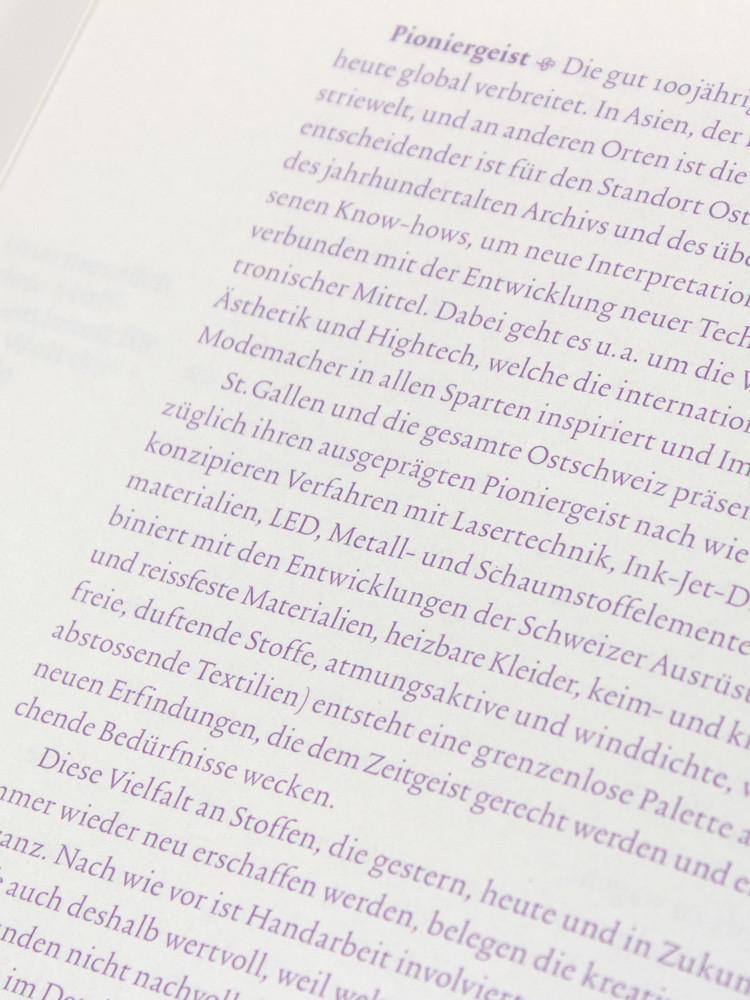 Pioniergeist Die gut 100jährig
heute global verbreitet. In Asien, der
striewelt, und an anderen Orten ist die
entscheidender ist für den Standort Ost
des jahrhundertalten Archivs und des übe
senen Know-hows, um neue Interpretation
verbunden mit der Entwicklung neuer Tech
tronischer Mittel. Dabei geht es u. a. um die
Ästhetik und Hightech, welche die internation
Modemacher in allen Sparten inspiriert und Im
St. Gallen und die gesamte Ostschweiz präsen
züglich ihren ausgeprägten Pioniergeist nach wie
konzipieren Verfahren mit Lasertechnik, Ink-Jet-D
materialien, LED, Metall- und Schaumstoffelemente
biniert mit den Entwicklungen der Schweizer Ausrüst
und reissfeste Materialien, heizbare Kleider, keim- und k
freie, duftende Stoffe, atmungsaktive und winddichte,
abstossende Textilien) entsteht eine grenzenlose Palette a
neuen Erfindungen, die dem Zeitgeist gerecht werden und e
chende Bedürfnisse wecken.
Diese Vielfalt an Stoffen, die gestern, heute und in Zukun
mmer wieder neu erschaffen werden, belegen die kreati
anz. Nach wie vor ist Handarbeit involviert
auch deshalb wertvoll, weil wel
nden nicht nachvoll
im De